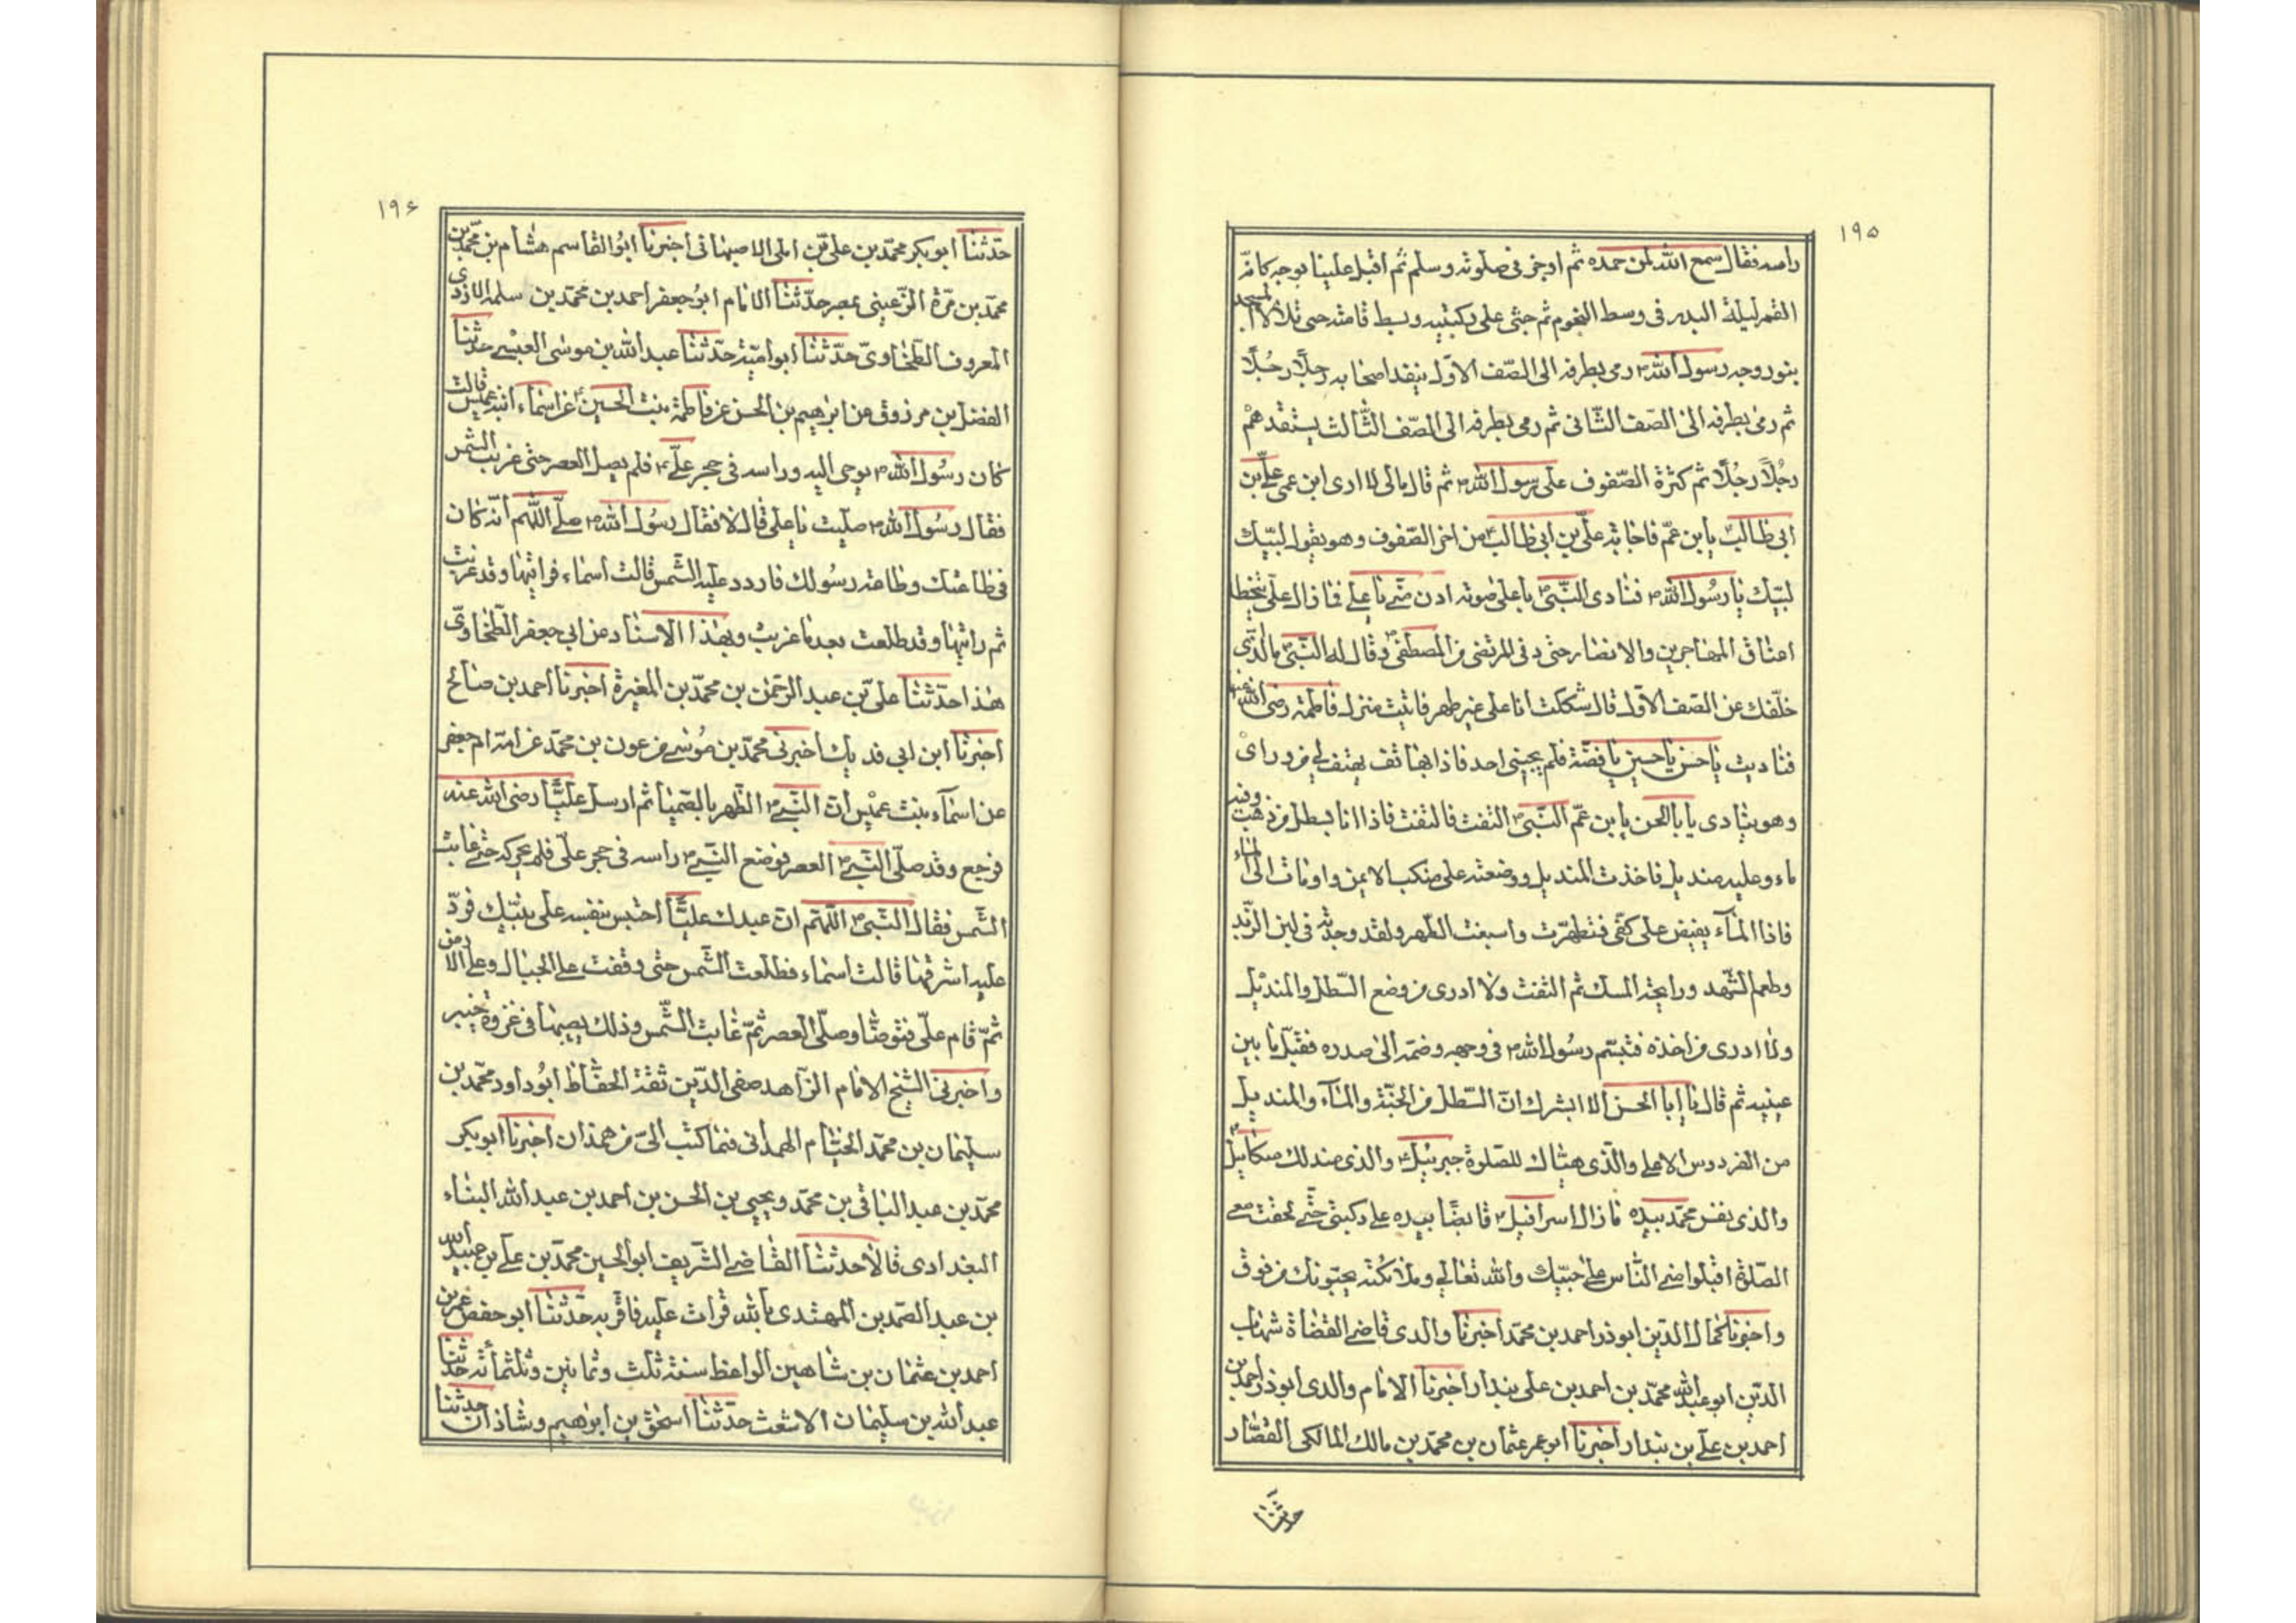 ١٩٥
راسه فقال سمع الله لمن حمده ثم اوجز فى صلوته وسلم ثم اقبل علينا بوجه كانّه
القمر ليلة البدر فى وسط النجوم ثم جثى على ركبتيه وبسط قامته حتى تلألأ المسجد
بنور وجه رسول الله ص رمى بطرفه الى الصّف الاول يتفقد اصحابه رجلًا رجُلًا
ثم رمى بطرفه الى الصّف الثّانى ثم رمى بطرفه الى الصّف الثّالث يستفقدهم
رجُلًا رجُلًا ثم كثرة الصّفوف على رسول الله ص ثم قال مالى لا ارى ابن عمى علىّ بن
ابى طالبٍ يا بن عمّ فاجابه علىّ بن ابى طالب من اخر الصّفوف وهو يقول لبّيك
لبّيك يا رسول الله ص فنادى النّبىّ ص باعلى صوته ادن منّى يا علىّ فما زال علىّ يتخطا
اعناق المهاجرين والانصار حتى دنى المرتضى من المصطفى ص وقال له النّبىّ ما الّذى
خلّفك عن الصّف الاول قال شككت انا على غير طهر فاتيت منزل فاطمة رضى الله عنها
فناديت يا حسن يا حسين يا فضّة فلم يجيبنى احد فاذا بهاتف يهتف بى من وراى
وهو ينادى يا با الحسن يا بن عمّ النّبىّ التفت فالتفت فاذا انا بسطل من ذهب وفيه
ماء وعليه منديل فاخذت المنديل ووضعته على منكب الايمن واومات الى الماء
فاذا المآء يفيض على كفّى فتطهّرت واسبغت الطّهر ولقد وجدته فى لين الزّبد
وطعم الشّهد ورايحة المسك ثم التفت ولا ادرى من وضع السّطل والمنديل
ولا ادرى من اخذه فتبسّم رسول الله ص فى وجهه وضمّه الى صدره فقبّل ما بين
عينيه ثم قال يا ابا الحسن الا ابشرك انّ السّطل من الجنّة والمآء والمنديل
من الفردوس الاعلى والّذى هيّاك للصّلوة جبرئيل والذى مندلك ميكائيل
والذى نفس محمّد بيده ما زال اسرافيل قابضًا بيده على ركبتى حتّى لحقت معى
الصّلوة افيلوا منى النّاس على حبّيك والله تعالى وملائكته يحبّونك من فوق
واخبرنا كمال الدّين ابو ذر احمد بن محمّد اخبرنا والدى قاضى القضاة شهاب
الدّين ابو عبد الله محمّد بن احمد بن على بندار اخبرنا الامام والدى ابو ذر احمد بن
احمد بن على بن بندار اخبرنا ابو عمر عثمان بن محمّد بن مالك المالكى القصّار
حدّثنا
١٩۶
حدّثنا ابو بكر محمّد بن علىّ بن املى الاصبهانى اخبرنا ابو القاسم هشام بن محمّد بن
محمّد بن مرّة الرّعينى بمصر حدّثنا الامام ابو جعفر احمد بن محمّد بن سلمة الازدى
المعروف الطّحاوىّ حدّثنا ابو اميّة حدّثنا عبيد الله بن موسى العبسى حدّثنا
الفضل بن مرزوق عن ابرهيم بن الحسن عن فاطمة بنت الحسين عن اسماء ابنة عميس قالت
كان رسول الله ص يوحى اليه وراسه فى حجر علىّ فلم يصل العصر حتى غربت الشّمس
فقال رسول الله ص صلّيت يا على قال لا فقال رسول الله ص اللّهم انّه كان
فى طاعتك وطاعة رسولك فاردد عليه الشّمس قالت اسماء فراتيها وقد غربت
ثم راتيها وقد طلعت بعد ما غربت وبهذا الاسناد عن ابى جعفر الطّحاوىّ
هذا حدّثنا علىّ بن عبد الرّحمن بن محمّد بن المغيرة اخبرنا احمد بن صالح
اخبرنا ابن ابى فديك اخبرنى محمّد بن موسى عن عون بن محمّد عن امّه ام جعفر
عن اسمآء بنت عميس انّ النّبى ص الظّهر بالصّهبا ثم ارسل عليًّا رضى الله عنه
فرجع وقد صلّى النّبى ص العصر فوضع النّبى ص راسه فى حجر علىّ فلم يحركه حتّى غابت
الشّمس فقال النّبى ص اللّهمّ انّ عبدك عليًّا احتبس بنفسه على نبيّك فردّ
عليه اشرقها قالت اسماء فطلعت الشّمس حتى وقفت على الجبال وعلى الارض
ثمّ قام علىّ فتوضّا وصلّى العصر ثمّ غابت الشّمس وذلك بصهبا فى غزوة خيبر
واخبرنى الشّيخ الامام الزّاهد صفى الدّين ثقة الحفّاظ ابو داود محمّد بن
سليمان بن محمّد الخيّام الهمدانى فيما كتب الىّ من همذان اخبرنا ابو بكر
محمّد بن عبد الباقى بن محمّد ويحيى بن الحسن بن احمد بن عبد الله البنّاء
البغدادى قالا حدّثنا القاضى الشّريف ابو الحسين محمّد بن على بن عبيد الله
بن عبد الصّمد بن المهتدى بالله قرات عليه فاقرّ به حدّثنا ابو حفص عمر بن
احمد بن عثمان بن شاهين الواعظ سنة ثلث وثمانين وثلثمائة حدّثنا
عبد الله بن سليمان الاشعث حدّثنا اسحق بن ابرهيم وشاذان حدّثنا